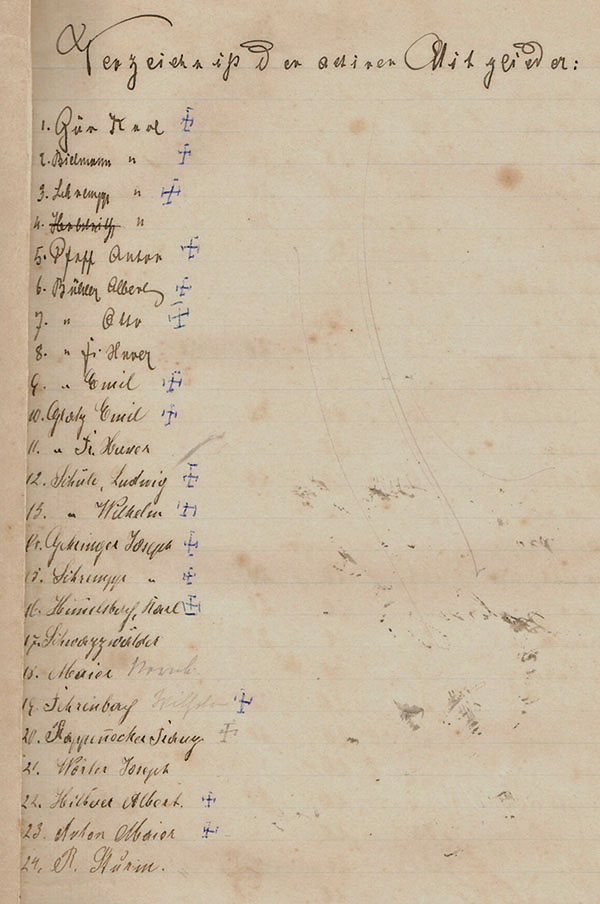 Verzeichniß der activen Mitglieder:
1. Zür Karl
2. Bielmann "
3. Schrempp "
4. "
5. Pfaff Anton
6. Bühler Albert
7. " Otto
8. " Fr. Xaver
9. " Emil
10. Glatz Emil
11. " Fr. Xaver
12. Schüle, Ludwig
13. " Wilhelm
14. Gehringer Joseph
15. Schrempp "
16. Himmelsbach, Karl
17. Schwarzwälder
18. Maier
19. Fehrenbach Wilhelm
20. Rappenecker Franz
21. Wörter Joseph
22. Albert.
23. Anton Maier
24. R. Sturm.